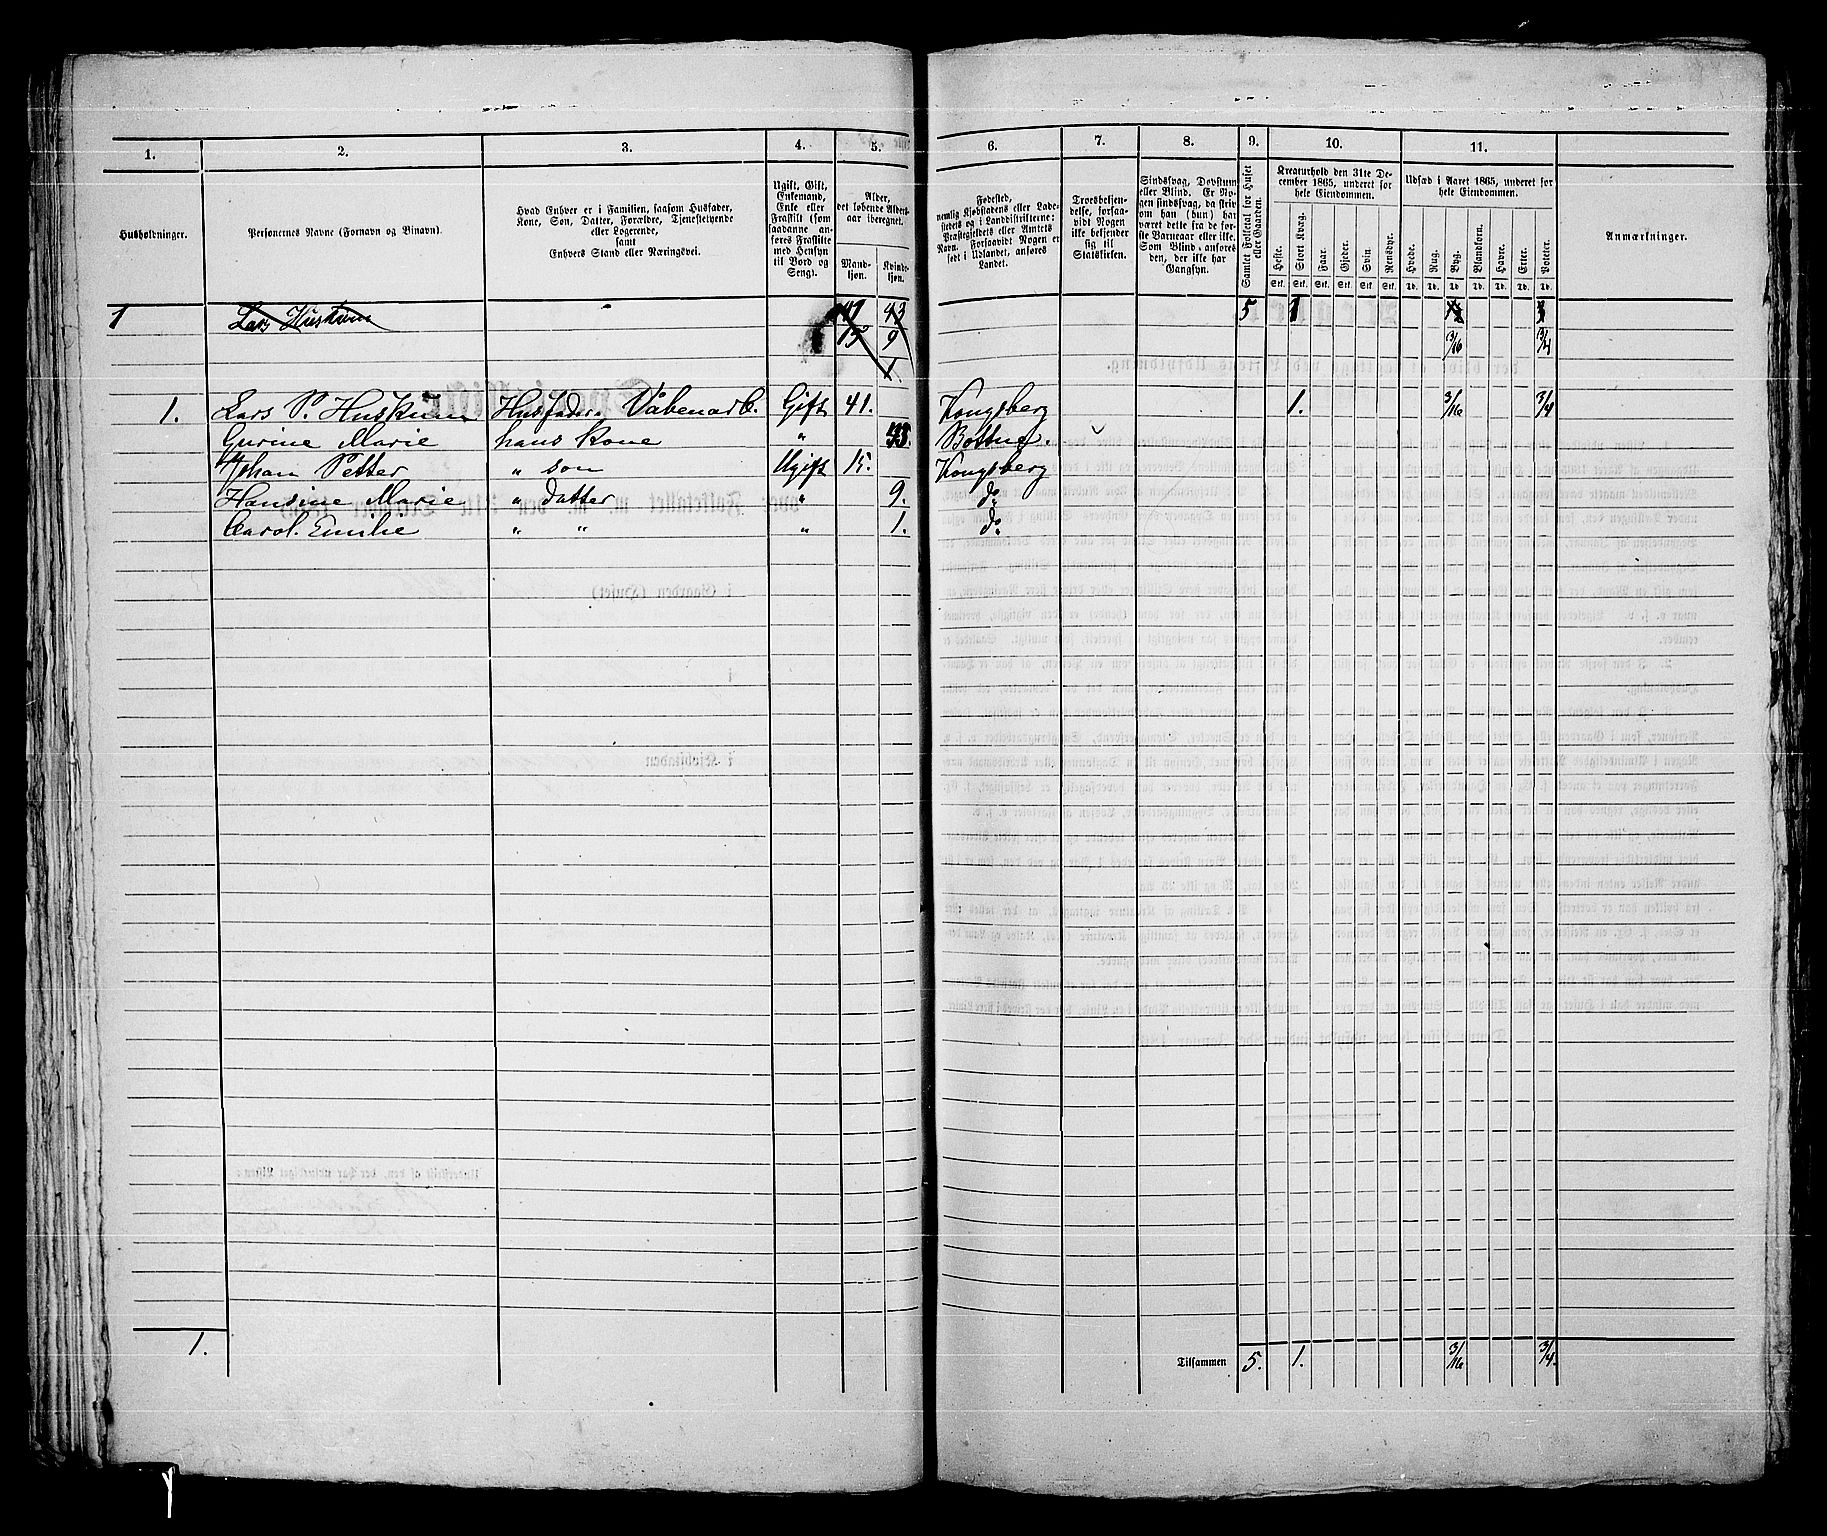 1. 2. 3. 4. 5. 6. 7. 8. 9. 10. 11.
Husholdninger.
Personernes Navne (Fornavn og Binavn).
Hvad Enhver er i Familien, saasom Husfader,
Kone, Søn, Datter, Forældre, Tjenestetyende
eller Logerende,
samt
Enhvers Stand eller Næringsvei.
Ugift, Gift,
Enkemand,
Enke eller
Fraskilt (som
saadanne an-
føres Fraskilte
med Hensyn
til Bord og
Seng).
Alder,
det løbende Alders-
aar iberegnet.
Mand-
kjøn.
Kvinde-
kjøn.
Fødested,
nemlig Kjøbstadens eller Lade-
stedets og i Landdistrikterne:
Præstegjeldets eller Amtets
Navn. Forsaavidt Nogen er
født i Udlandet, anføres
Landet.
Troesbekjen-
delse, forsaa-
vidt Nogen
ikke bekjender
sig til
Statskirken.
Sindssvag, Døvstum
eller Blind. Er No-
gen sindssvag, da skriv
om han (hun) har
været dette fra de før-
ste Barneaar eller ikke.
Som Blind anføres
den, der ikke har
Gangsyn.
Samlet Folketal for Huset
eller Gaarden.
Kreaturhold den 31te De-
cember 1865, underet for
hele Eiendommen.
Heste. Stort Kvæg. Faar. Gjeder. Svin. Rensdyr.
Stk. Stk. Stk. Stk. Stk. Stk.
Udsæd i Aaret 1865, underet for
hele Eiendommen.
Hvede. Rug. Byg. Blandkorn. Havre. Erter. Poteter.
Td. Td. Td. Td. Td. Td. Td.
Anmærkninger.
1 Lars Huskum 43 5 1
15 9 3/16 3/4
1
1. Lars P. Huskum Husfader, Våbenarb. Gift 41. Kongsberg 1. 3/16 3/4
Gurine Marie hans Kone "
Johan Petter " søn Ugift 15. Kongsberg
Hansine Marie " datter " 9. do
Carol. Emilie " " " 1. do
1. Tilsammen 5. 1. 3/16 3/4.